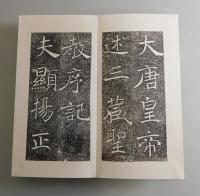 大唐皇帝
述三藏聖
教序記
夫顯揚正